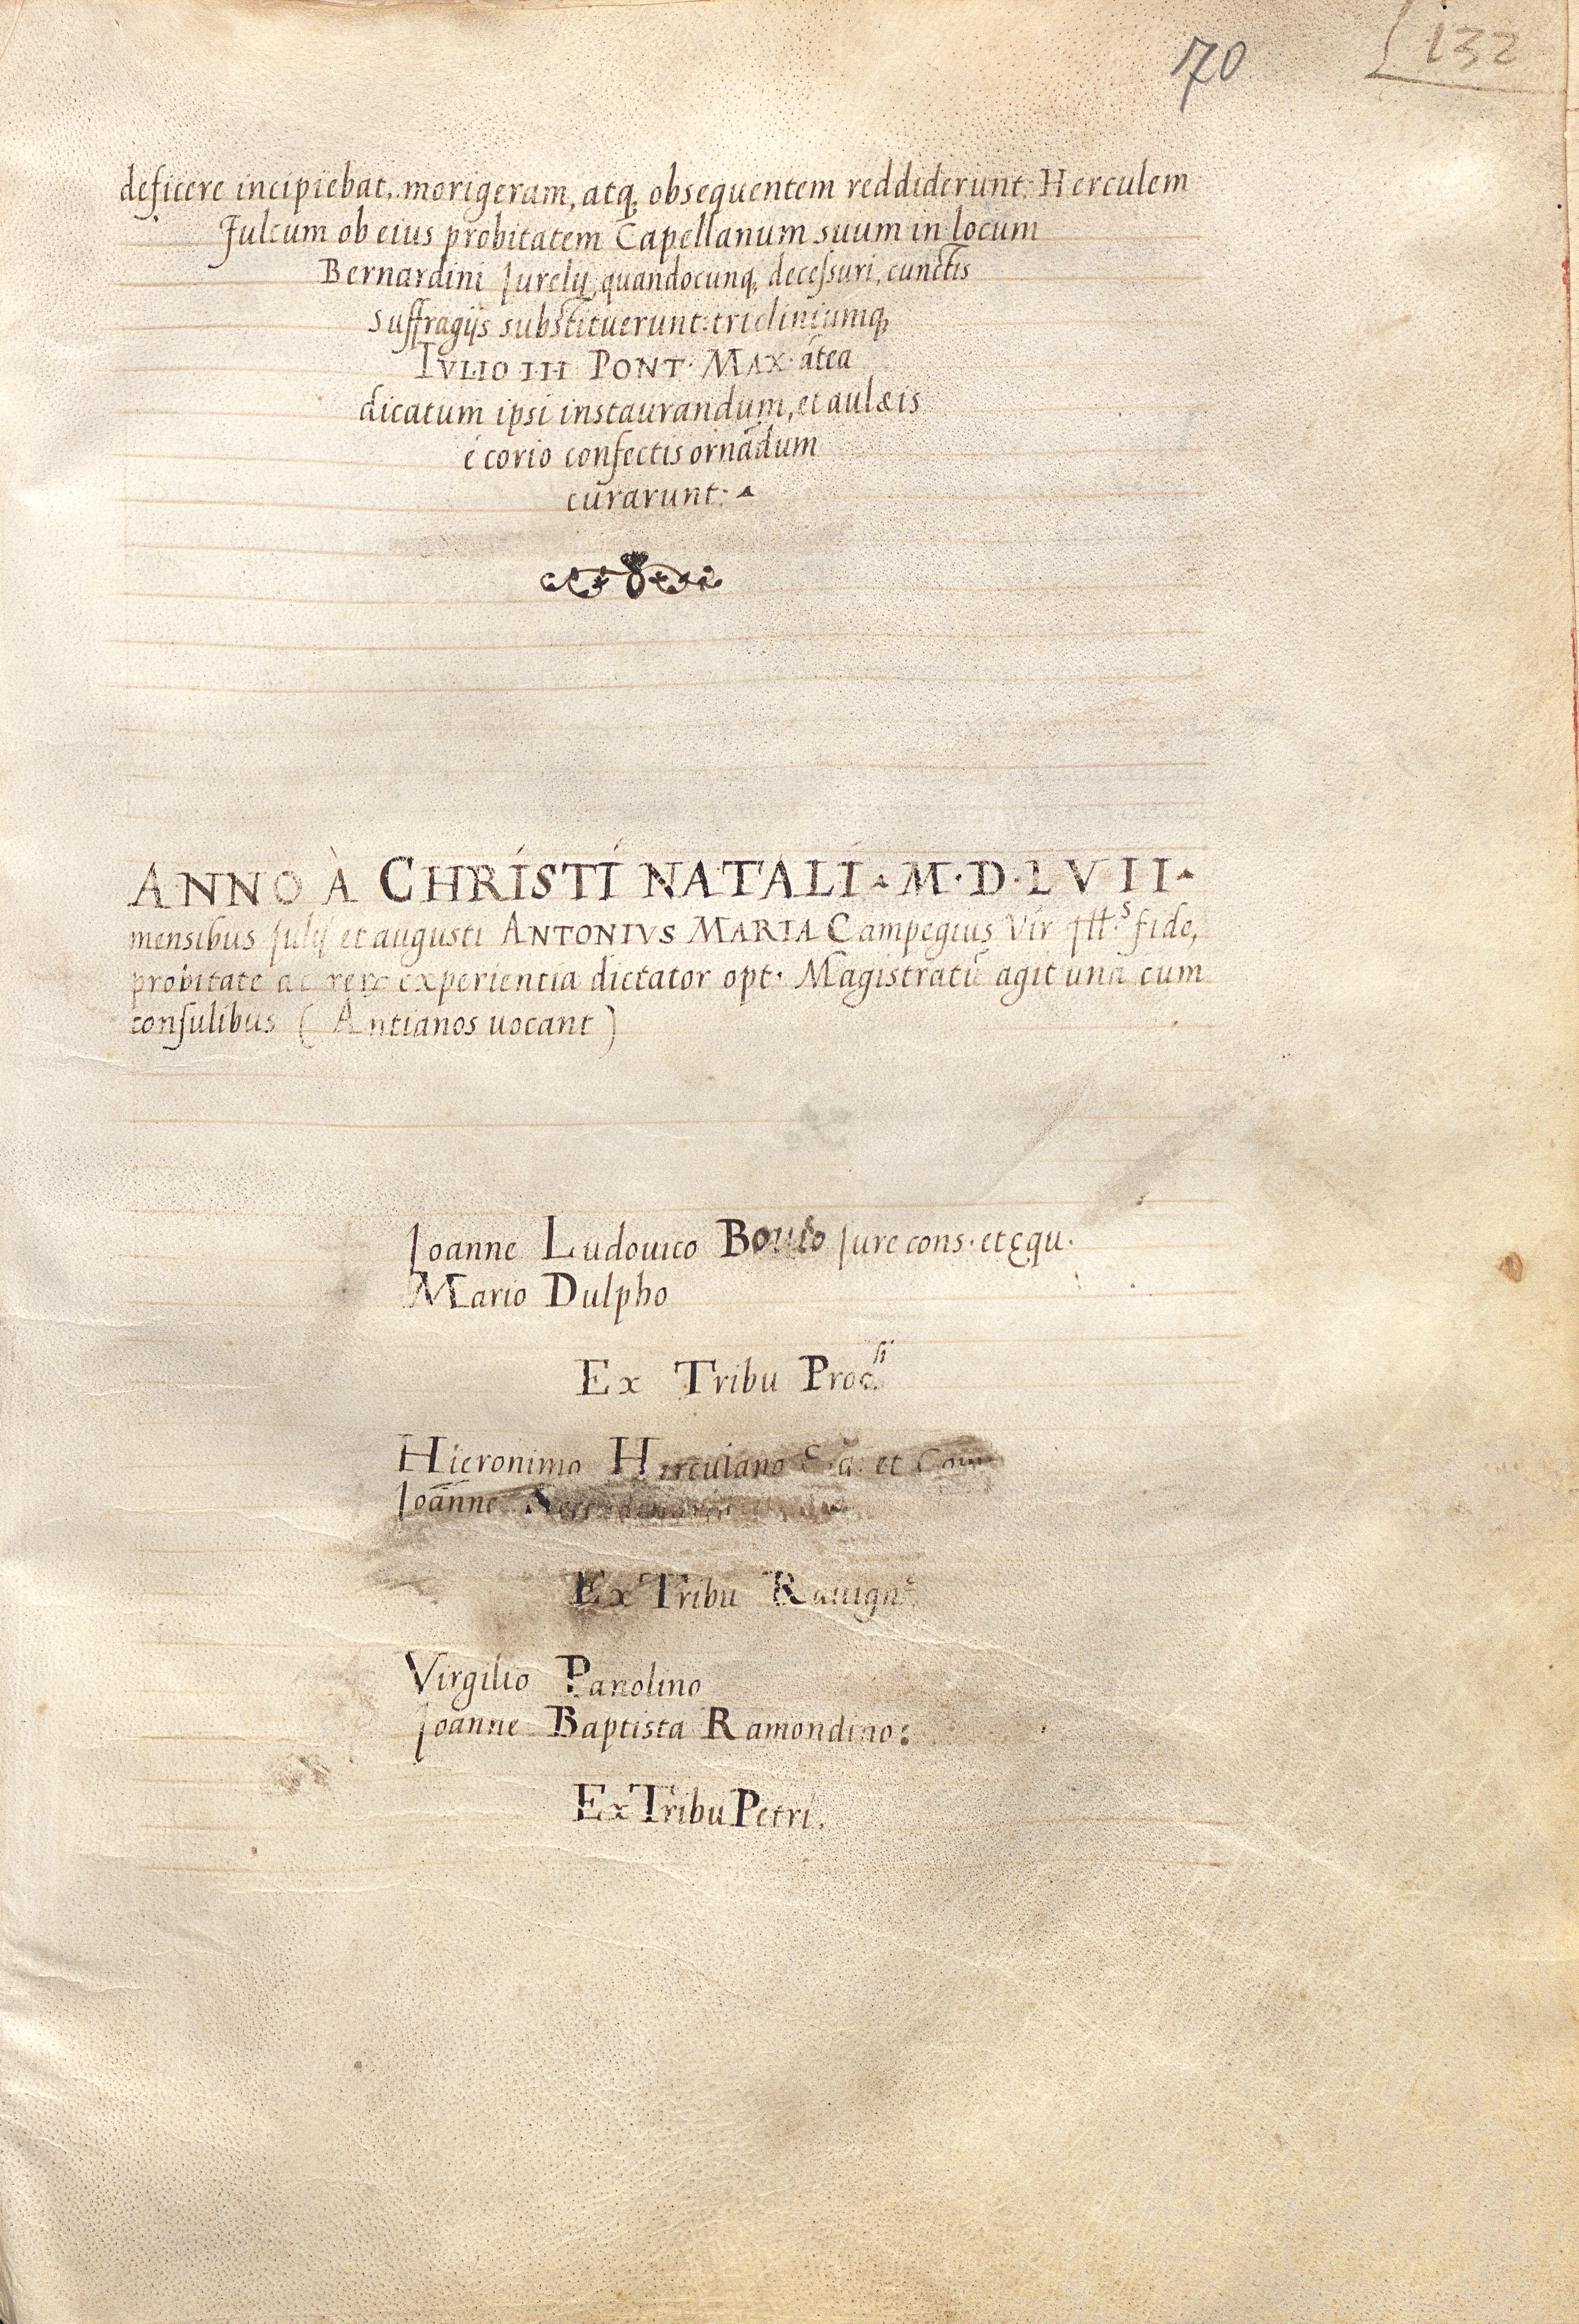 70
132
deficere incipiebat, morigeram, atq, obsequentem reddiderunt: Herculem
Fulcum ob eius probitatem Capellanum suum in locum
Bernardini Jurely, quandocunq, decessuri, cunctis
suffragijs substituerunt: tricliniumq,
IVLIO III PONT· MAX· ãtea
dicatum ipsi instaurandum, et aulæis
é corio confectis ornãdum
curarunt:
ANNO À CHRISTI NATALI · M·D·LVII·
mensibus Julij et augusti ANTONIVS MARIA Campegius Vir fide,
probitate ac experientia dictator opt· Magistratũ agit unà cum
consulibus ( Antianos uocant )
Joanne Ludouico Jure cons· et equ·
Mario Dulpho
Ex Tribu Proc.
Hieronimo Herculano et
Joanne
Ex Tribu Rauign
Virgilio Panolino
Joanne Baptista Ramondino:
Ex Tribu Petri.